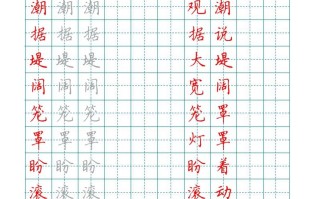 潮 潮 潮 观 潮
据 据 据 据 说
堤 堤 堤 大 堤
阔 阔 阔 宽 阔
笼 笼 笼 笼 罩
罩 罩 罩 灯 罩
盼 盼 盼 盼 着
滚 滚 滚 滚 动